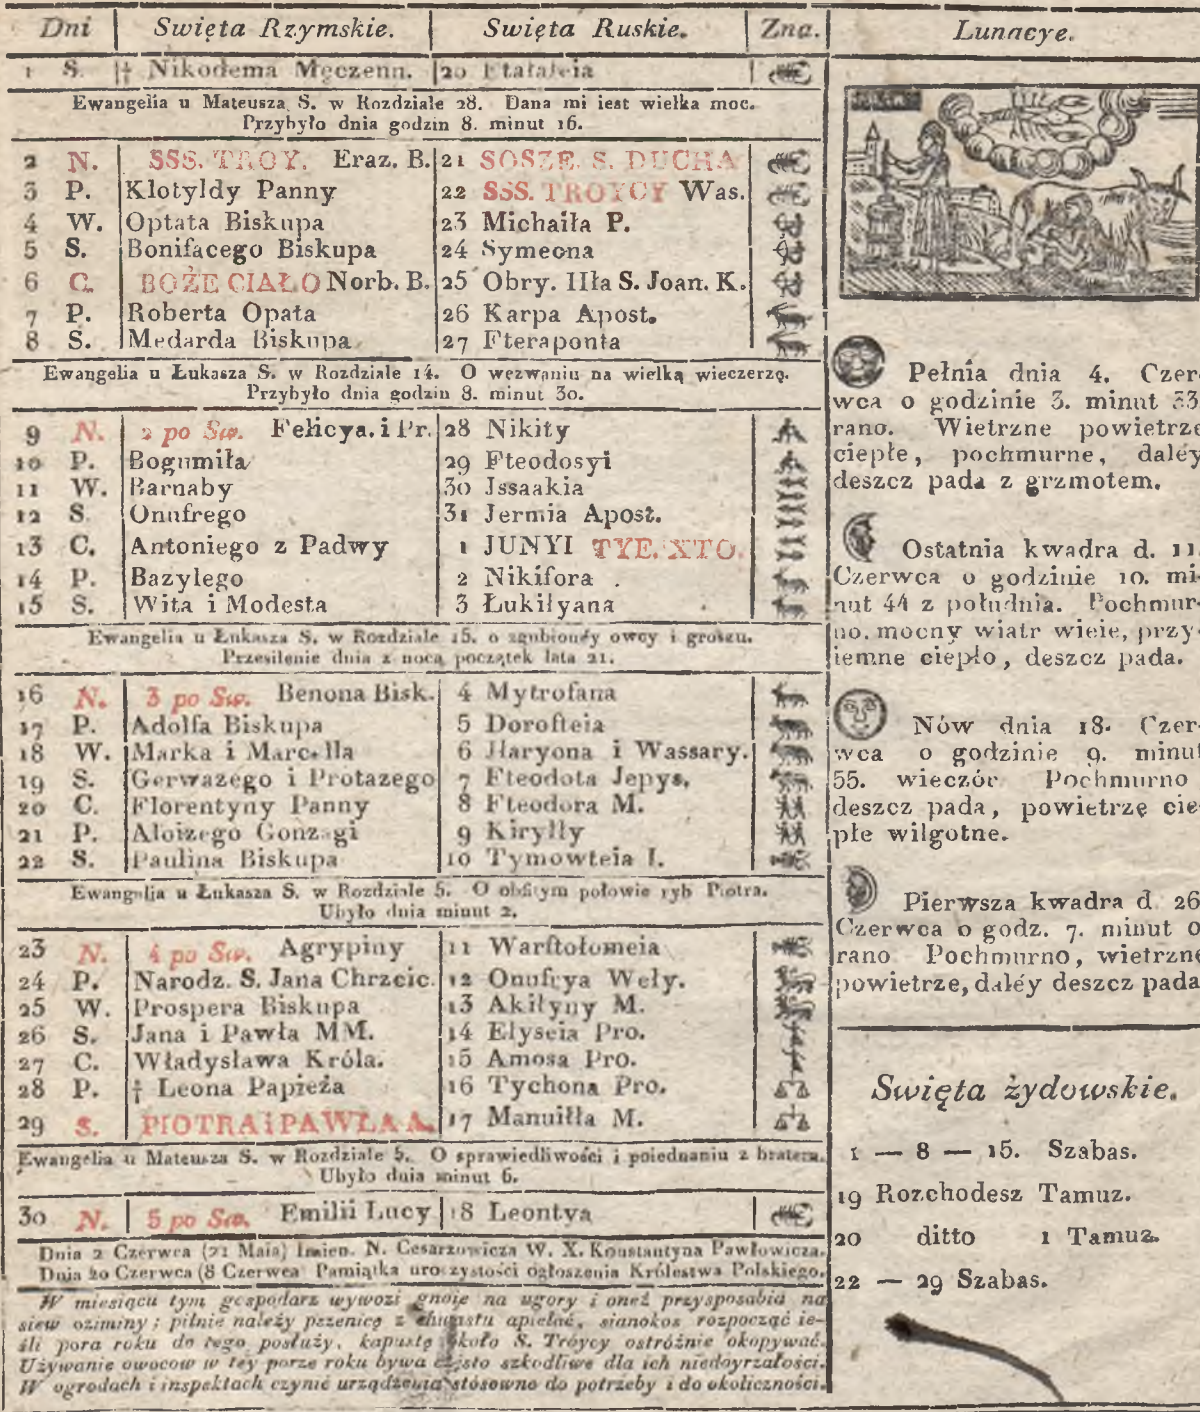 Dni Swięta Rzymskie. Swięta Ruskie. Zna.
1 S. † Nikodema Męczenn. 20 Ftałałeia
Ewangelia u Mateusza S. w Rozdziale 28. Dana mi iest wielka moc.
Przybyło dnia godzin 8. minut 16.
2 N. SSS. TROY. Eraz. B. 21 SOSZE. S. DUCHA
3 P. Klotyldy Panny 22 SSS. TROYCY Was.
4 W. Optata Biskupa 23 Michaiła P.
5 S. Bonifacego Biskupa 24 Symeona
6 C. BOŻE CIAŁO Norb. B. 25 Obry. Hła S. Joan. K.
7 P. Roberta Opata 26 Karpa Apost.
8 S. Medarda Biskupa 27 Fteraponta
Ewangelia u Łukasza S. w Rozdziale 14. O wezwaniu na wielką wieczerzę.
Przybyło dnia godzin 8. minut 30.
9 N. 2 po Sw. Felicya. i Pr. 28 Nikity
10 P. Bogumiła 29 Fteodosyi
11 W. Barnaby 30 Jssaakia
12 S Onufrego 31 Jermia Apost.
13 C. Antoniego z Padwy 1 JUNYI TYE. XTO.
14 P. Bazylego 2 Nikifora
15 S. Wita i Modesta 3 Łukiłyana
Ewangelia u Łukasza S. w Rozdziale 15. o zgubionéy owcy i groszu.
Przesilenie dnia z nocą początek lata 21.
16 N. 3 po Sw. Benona Bisk. 4 Mytrofana
17 P. Adolfa Biskupa 5 Dorofteia
18 W. Marka i Marcella 6 Haryona i Wassary.
19 S. Gerwazego i Protazego 7 Fteodota Jepys.
20 C. Florentyny Panny 8 Fteodora M.
21 P. Aloizego Gonzagi 9 Kiryłły
22 S. Paulina Biskupa 10 Tymowteia I.
Ewangelia u Łukasza S. w Rozdziale 5. O obfitym połowie ryb Piotra.
Ubyło dnia minut 2.
23 N. 4 po Sw. Agrypiny 11 Warftołomeia
24 P. Narodz. S. Jana Chrzcic. 12 Onufrya Weły.
25 W. Prospera Biskupa 13 Akiłyny M.
26 S. Jana i Pawła MM. 14 Elyseia Pro.
27 C. Władysława Króla. 15 Amosa Pro.
28 P. † Leona Papieża 16 Tychona Pro.
29 S. PIOTRA i PAWŁA A. 17 Manuiłła M.
Ewangelia u Mateusza S. w Rozdziale 5. O sprawiedliwości i poiednaniu z bratem.
Ubyło dnia minut 6.
30 N. 5 po Sw. Emilii Lucy 18 Leontya
Dnia 2 Czerwca (21 Maia) Imien. N. Cesarzowicza W. X. Konstantyna Pawłowicza.
Dnia 20 Czerwca (8 Czerwca Pamiątka uroczystości ogłoszenia Królestwa Polskiego.
W miesiącu tym gospodarz wywozi gnoie na ugory i oneż przysposabia na
siew oziminy; pilnie należy pszenicę z chwastu apielać, sianokos rozpocząć ie-
śli pora roku do tego posłuży, kapustę około S. Tróycy ostróżnie okopywać.
Używanie owocow w tey porze roku bywa często szkodliwe dla ich niedoyrzałości.
W ogrodach i inspektach czynić urządzenia stósowne do potrzeby i do okoliczności.
Lunacye.
Pełnia dnia 4. Czer-
wca o godzinie 3. minut 33
rano. Wietrzne powietrze
ciepłe, pochmurne, daléy
deszcz pada z grzmotem.
Ostatnia kwadra d. 11.
Czerwca o godzinie 10. mi-
nut 44 z południa. Pochmur-
no, mocny wiatr wieie, przy-
iemne ciepło, deszcz pada.
Nów dnia 18. Czer-
wca o godzinie 9. minut
55. wieczór Pochmurno
deszcz pada, powietrzę cie-
płe wilgotne.
Pierwsza kwadra d. 26
Czerwca o godz. 7. minut 0
rano Pochmurno, wietrzne
powietrze, daléy deszcz pada
Swięta żydowskie.
1 — 8 — 15. Szabas.
19 Rozchodesz Tamuz.
20 ditto 1 Tamuz.
22 — 29 Szabas.